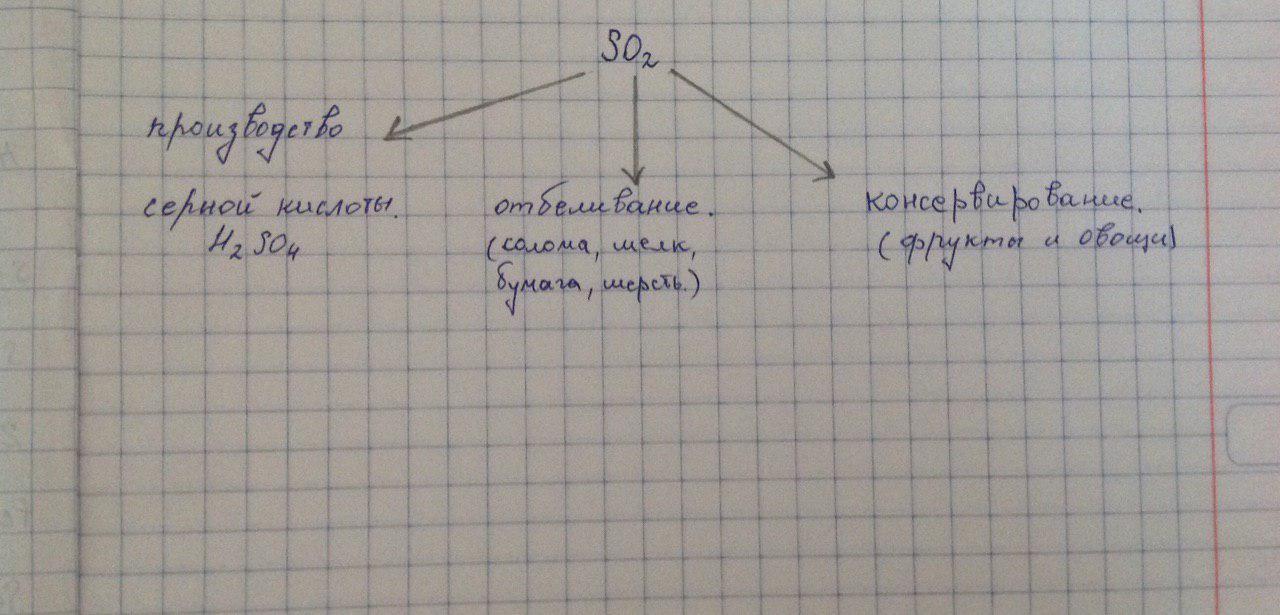 SO₂
производство
серной кислоты.
H₂SO₄
отбеливание.
(солома, шелк,
бумага, шерсть.)
консервирование.
(фрукты и овощи)